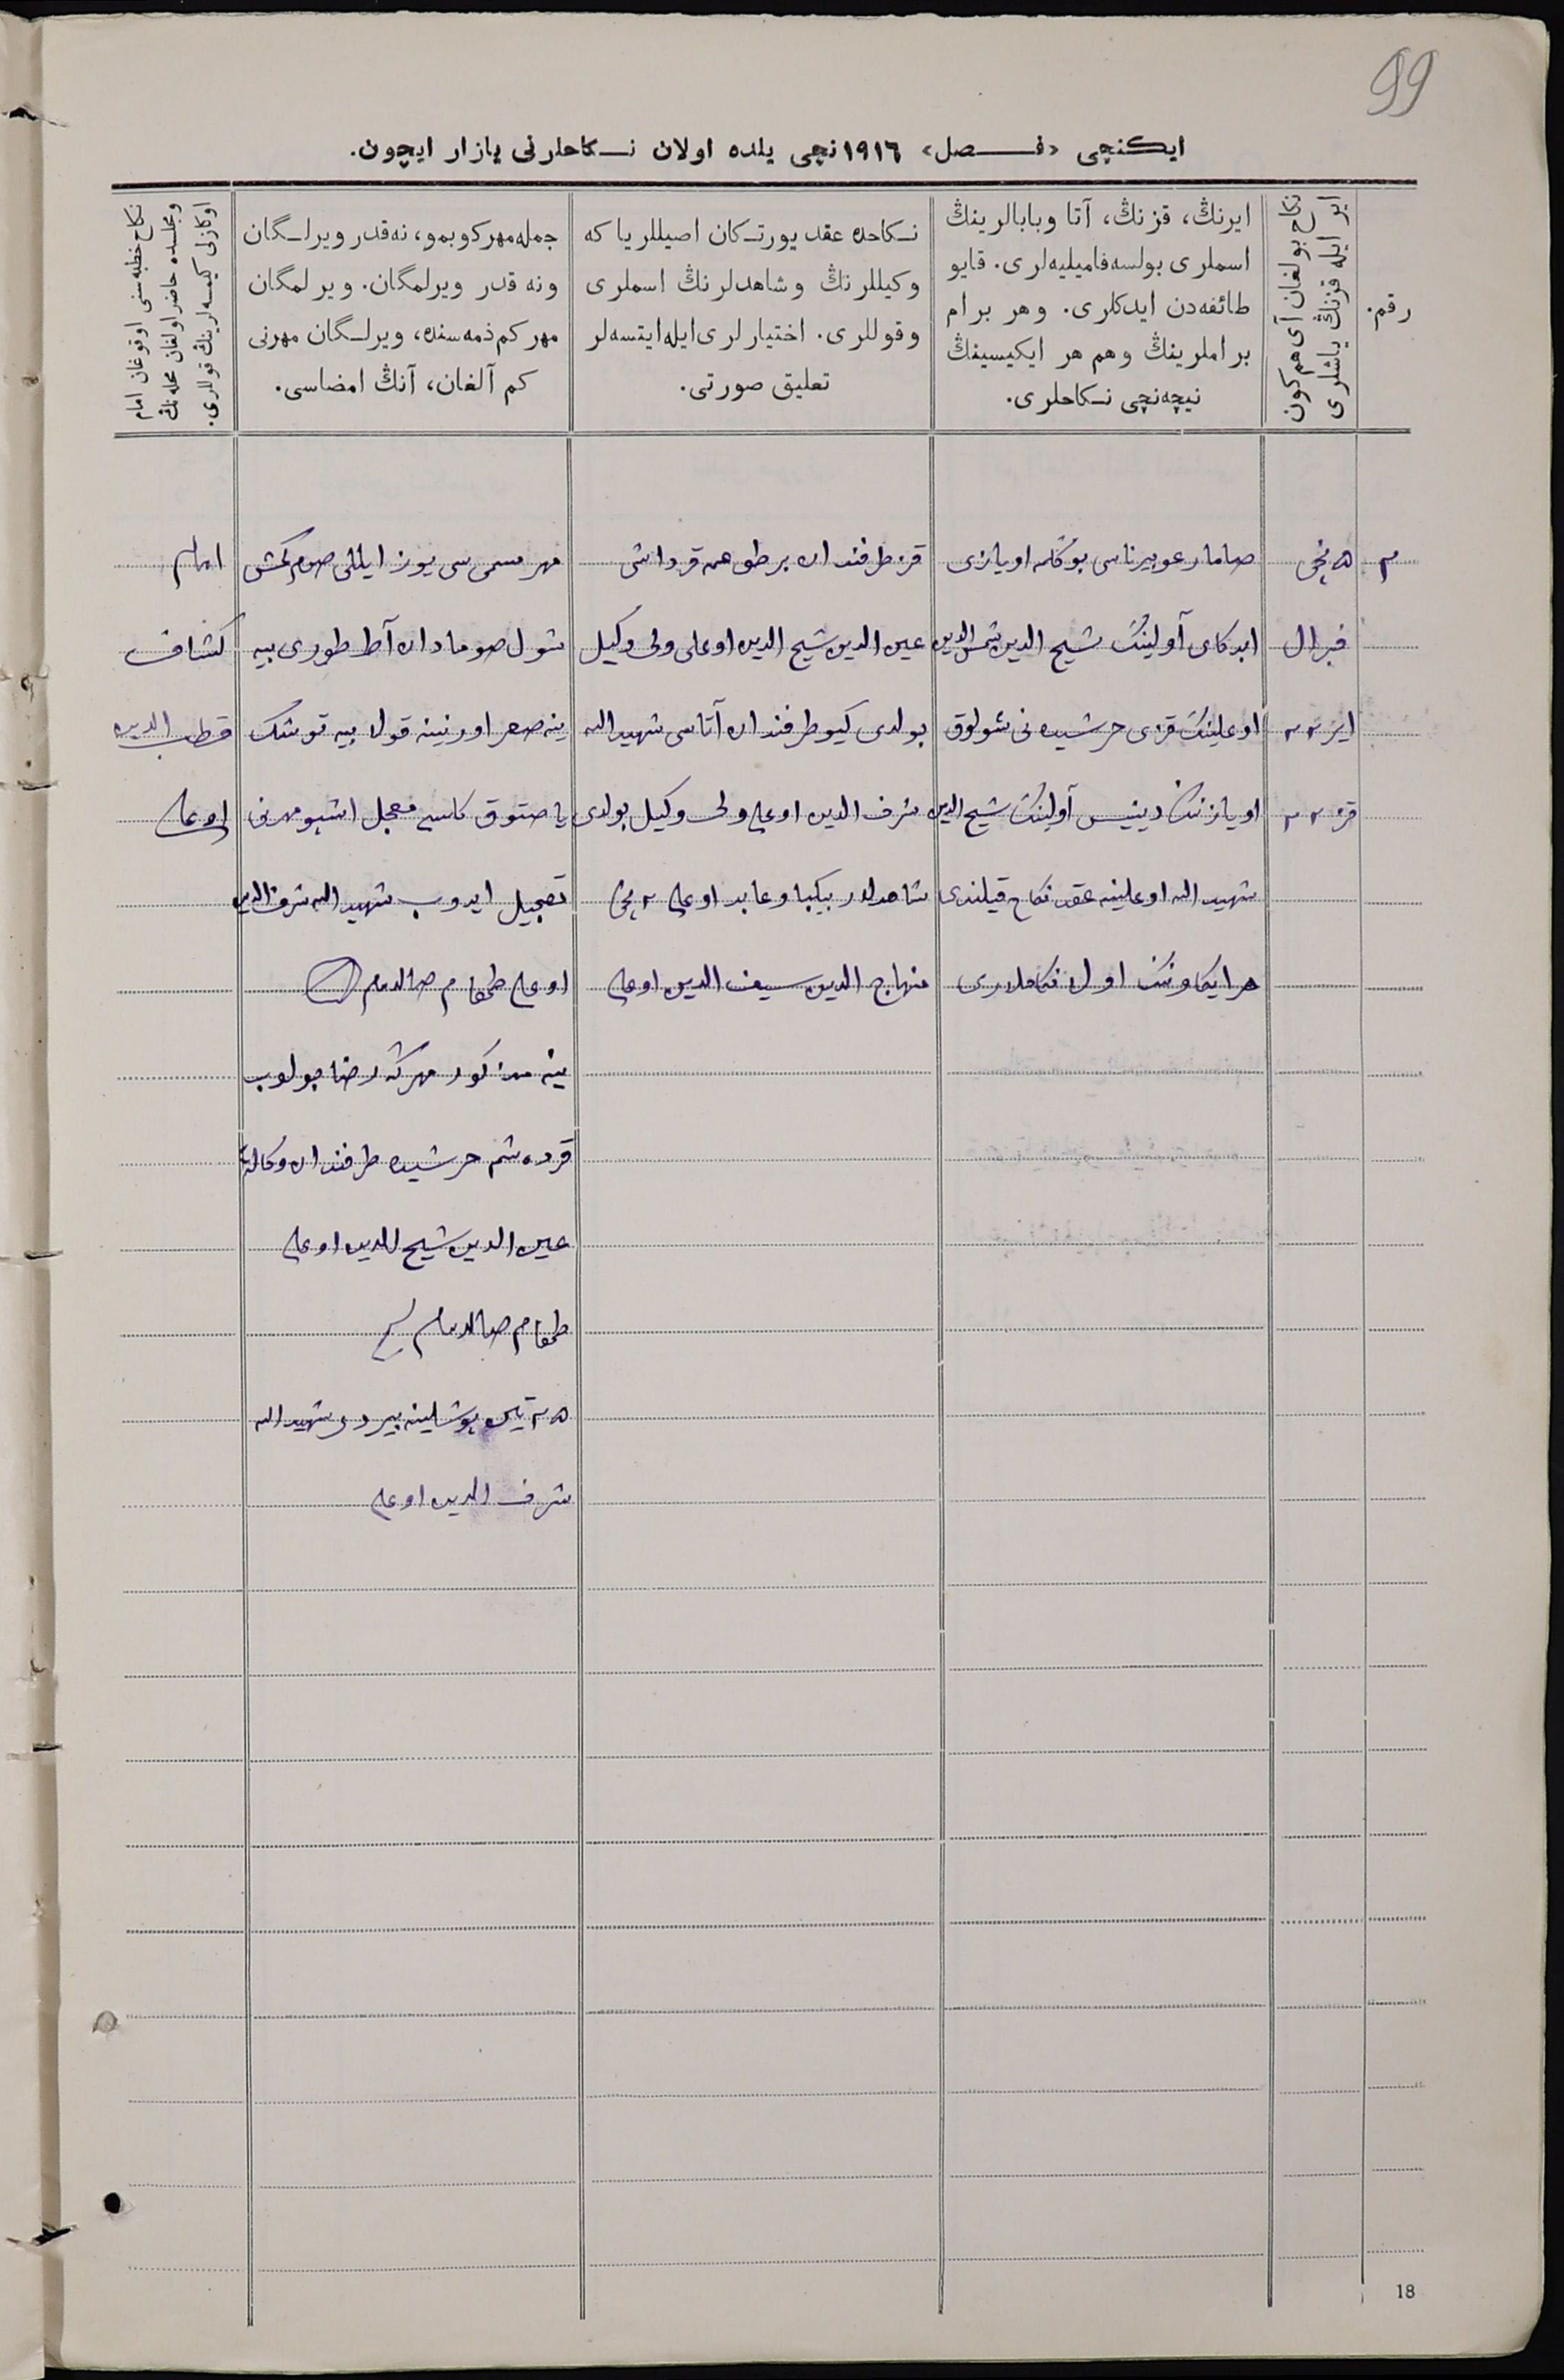 99
ایكنچی «فـــصل» ١٩١٦ نچی یلده اولان نـــكاحلرنی یازار ایچون.
رقم.
نكاح بولغان آی هم كون
ایر ایله قزنڭ یاشلری
ایرنڭ، قزنڭ، آتا وبابالرینڭ
اسملری بولسه فامیلیه‌لری. قایو
طائفه‌دن ایدكلری. وهر برام
براملرینڭ وهم هر ایكیسینڭ
نیچه‌نچی نـكاحلری.
نـكاحده عقد یورتـكان اصیللریا كه
وكیللرنڭ وشاهدلرنڭ اسملری
وقوللری. اختیارلری ایله ایتسه‌لر
تعلیق صورتی.
جمله مهر كوبمو، نه‌قدر ویرلـگان
ونه قدر ویرلمگان. ویرلمگان
مهر كم ذمه‌سنده، ویرلـگان مهرنی
كم آلغان، آنڭ امضاسی.
نكاح خطبه‌سنی اوقوغان امام
ومجلسده حاضر اولغان محله‌نڭ
اوكازلی كیمسه‌لرینڭ قوللری.
٣
٥ نچی
فبرال
ایر ٢٢
قز ٢٢
صامار غوبیرناسی بوگلمه اویازی
ابدكای آولینڭ شیخ الدین شمس الدین
اوغلینڭ قزی حرشیده نی شولوق
اویازننڭ دینیس آولینڭ شیخ الدین
شهید الله اوغلینه عقد نكاح قیلندی
هر ایكاونڭ اول نكاحلاری
قز طرفندان برطوغمه قرداشی
عین الدین شیخ الدین اوغلی ولی وكیل
بولدی كیو طرفندان آتاسی شهید الله
شرف الدین اوغلی ولی وكیل بولدی
شاهدلار بیكبا وعابد اوغلی ٢ نچی
منهاج الدین سیف الدین اوغلی
مهر مسمی سی یوز ایللی صوم كمش
شول صومادان آط طوری بیه
ینه صعر اورنینه قولا بیه توشك
یاصتوق كاسی معجل اشبو مهرنی
تعجیل ایدوب شهید الله شرف الدین
اوغلی طمغام صالدم
ینه مذكور مهرگه رضا بولوب
قرده‌شم حرشیده طرفندان وكالة
عین الدین شیخ الدین اوغلی
طمغام صالدم
٢٥ تین پوشلینه بیردی شهید الله
شرف الدین اوغلی
امام
كشاف
قطب الدین
اوغلی
18